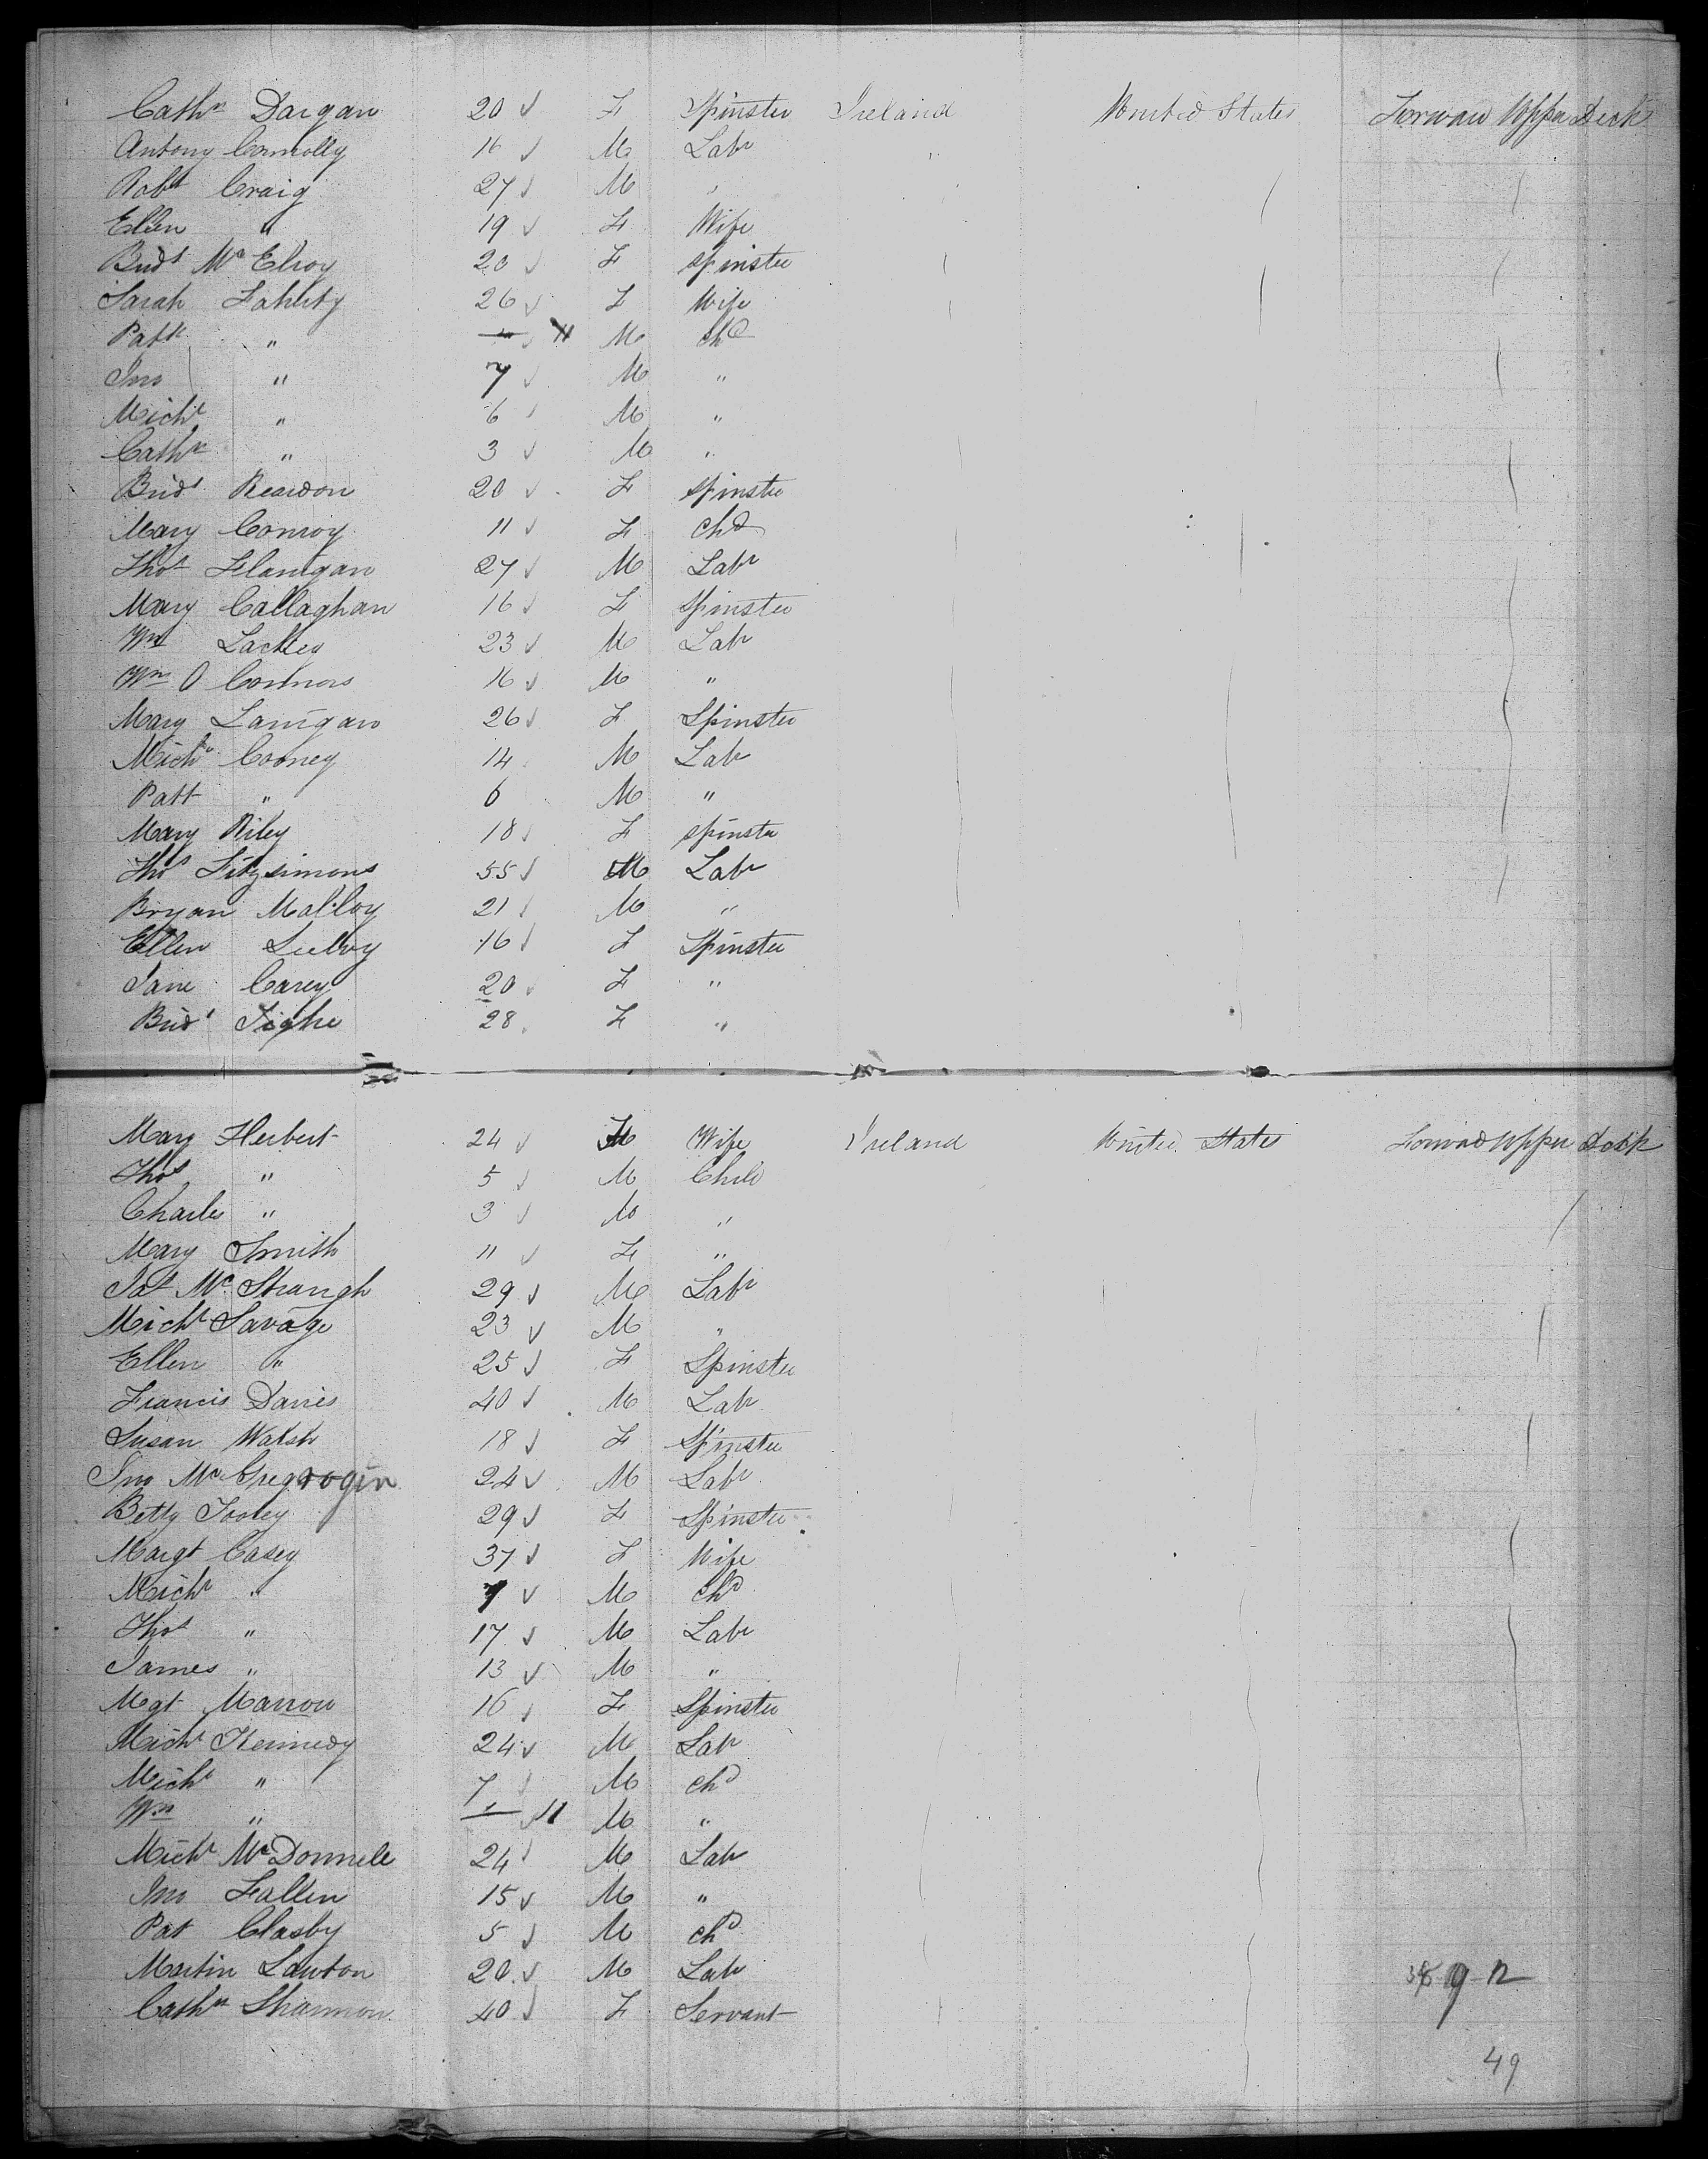 Cathn Dargan 20 F Spinster Ireland United States Forward Upper Deck
Antony Connolly 16 M Labr "
Robt Craig 27 M "
Ellen " 19 F Wife
Bridt McElroy 20 F Spinster
Sarah Faherty 26 F Wife
Patk " 11 M Chd
Jno " 7 M "
Michl " 6 M "
Cathn " 3 M "
Bridt Reardon 20 F Spinster
Mary Conroy 11 F Chd
Thos Flanigan 27 M Labr
Mary Callaghan 16 F Spinster
Wm Lackey 23 M Labr
Wm O Connors 16 M "
Mary Lanigan 26 F Spinster
Michl Cooney 14 M Labr
Patt " 6 M "
Mary Riley 18 F Spinster
Thos Fitzsimons 55 M Labr
Bryan Malloy 21 M "
Ellen 16 F Spinster
Jane Carey 20 F "
Bridt Tighe 28 F "
Mary Herbert 24 F Wife Ireland United States Forward Upper Deck
Thos " 5 M Child
Charles " 3 M "
Mary Smith 11 F "
Jas 29 M Labr
Michl Savage 23 M "
Ellen " 25 F Spinster
Francis Davies 40 M Labr
Susan Walsh 18 F Spinster
Jno McGregrogin 24 M Labr
Betty Tooley 29 F Spinster
Margt Casey 37 F Wife
Michl " 7 M Chd
Thos " 17 M Labr
James " 13 M "
Mgt Marrow 16 F Spinster
Michl Kennedy 24 M Labr
Michl " 7 M Chd
Wm " 11 M "
Michl McDonnell 24 M Labr
Jno Fallen 15 M "
Pat Clasby 5 M Chd
Martin Lawton 20 M Labr
Cathn Shannon 40 F Servant
49